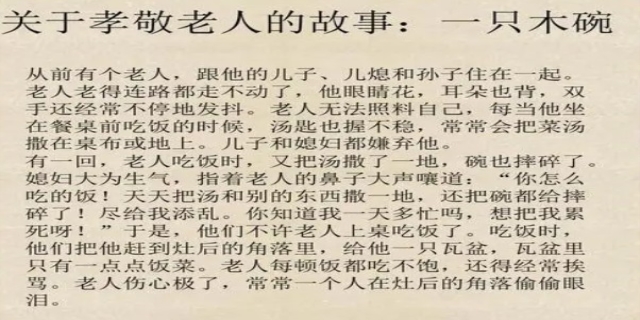 关于孝敬老人的故事：一只木碗
从前有个老人，跟他的儿子、儿熄和孙子住在一起。
老人老得连路都走不动了，他眼睛花，耳朵也背，双
手还经常不停地发抖。老人无法照料自己，每当他坐
在餐桌前吃饭的时候，汤匙也握不稳，常常会把菜汤
撒在桌布或地上。儿子和媳妇都嫌弃他。
有一回，老人吃饭时，又把汤撒了一地，碗也摔碎了。
媳妇大为生气，指着老人的鼻子大声嚷道：“你怎么
吃的饭！天天把汤和别的东西撒一地，还把碗都给摔
碎了！尽给我添乱。你知道我一天多忙吗，想把我累
死呀！”于是，他们不许老人上桌吃饭了。吃饭时，
他们把他赶到灶后的角落里，给他一只瓦盆，瓦盆里
只有一点点饭菜。老人每顿饭都吃不饱，还得经常挨
骂。老人伤心极了，常常一个人在灶后的角落偷偷眼
泪。